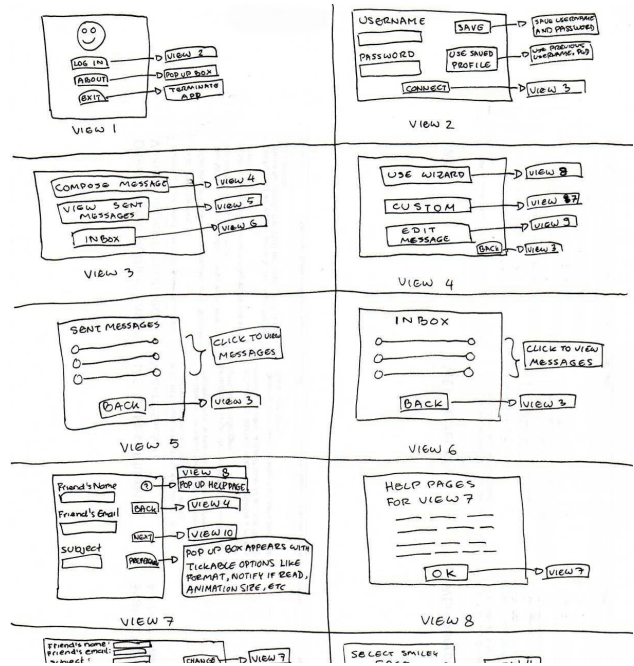 LOG IN
VIEW 2
ABOUT
POP UP BOX
EXIT
TERMINATE
APP
VIEW 1
USERNAME
SAVE
SAVE USERNAME
AND PASSWORD
PASSWORD
USE SAVED
PROFILE
USE PREVIOUS
USERNAME, PWD
CONNECT
VIEW 3
VIEW 2
COMPOSE MESSAGE
VIEW 4
VIEW SENT
MESSAGES
VIEW 5
INBOX
VIEW 6
VIEW 3
USE WIZARD
VIEW 8
CUSTOM
VIEW 7
EDIT
MESSAGE
VIEW 9
BACK
VIEW 3
VIEW 4
SENT MESSAGES
CLICK TO VIEW
MESSAGES
BACK
VIEW 3
VIEW 5
INBOX
CLICK TO VIEW
MESSAGES
BACK
VIEW 3
VIEW 6
Friend's Name
?
VIEW 8
POP UP HELP PAGE
Friend's Email
BACK
VIEW 4
NEXT
VIEW 10
Subject
POP UP BOX APPEARS WITH
TICKABLE OPTIONS LIKE
FORMAT, NOTIFY IF READ,
ANIMATION SIZE, ETC
VIEW 7
HELP PAGES
FOR VIEW 7
OK
VIEW 7
VIEW 8
Friend's name:
Friend's email:
Subject:
CHANGE
VIEW 7
SELECT SMILEY